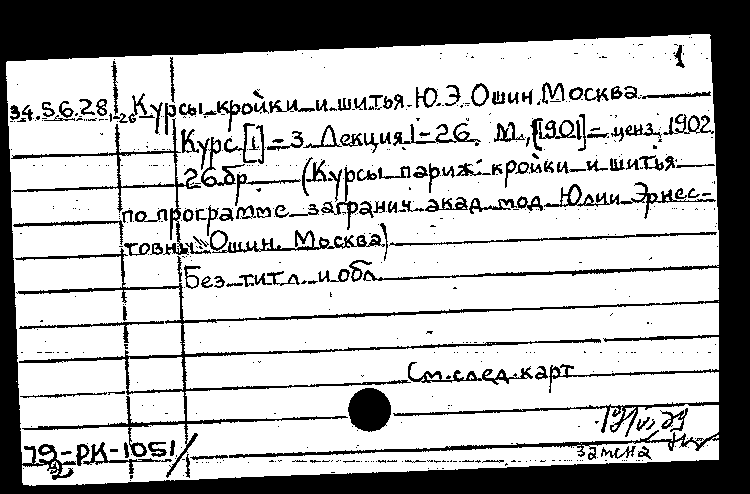 1
34.5.6.28 1-26 Курсы кройки и шитья Ю.Э.Ошин, Москва
Курс [1] - 3. Лекция 1-26. М., [1901] - ценз. 1902
26 бр. (Курсы париж. кройки и шитья
по программе загранич. акад. мод. Юлии Эрнес-
товны Ошин. Москва)
Без тит. л. и обл.
См. след. карт
79-РК-1051/
замена